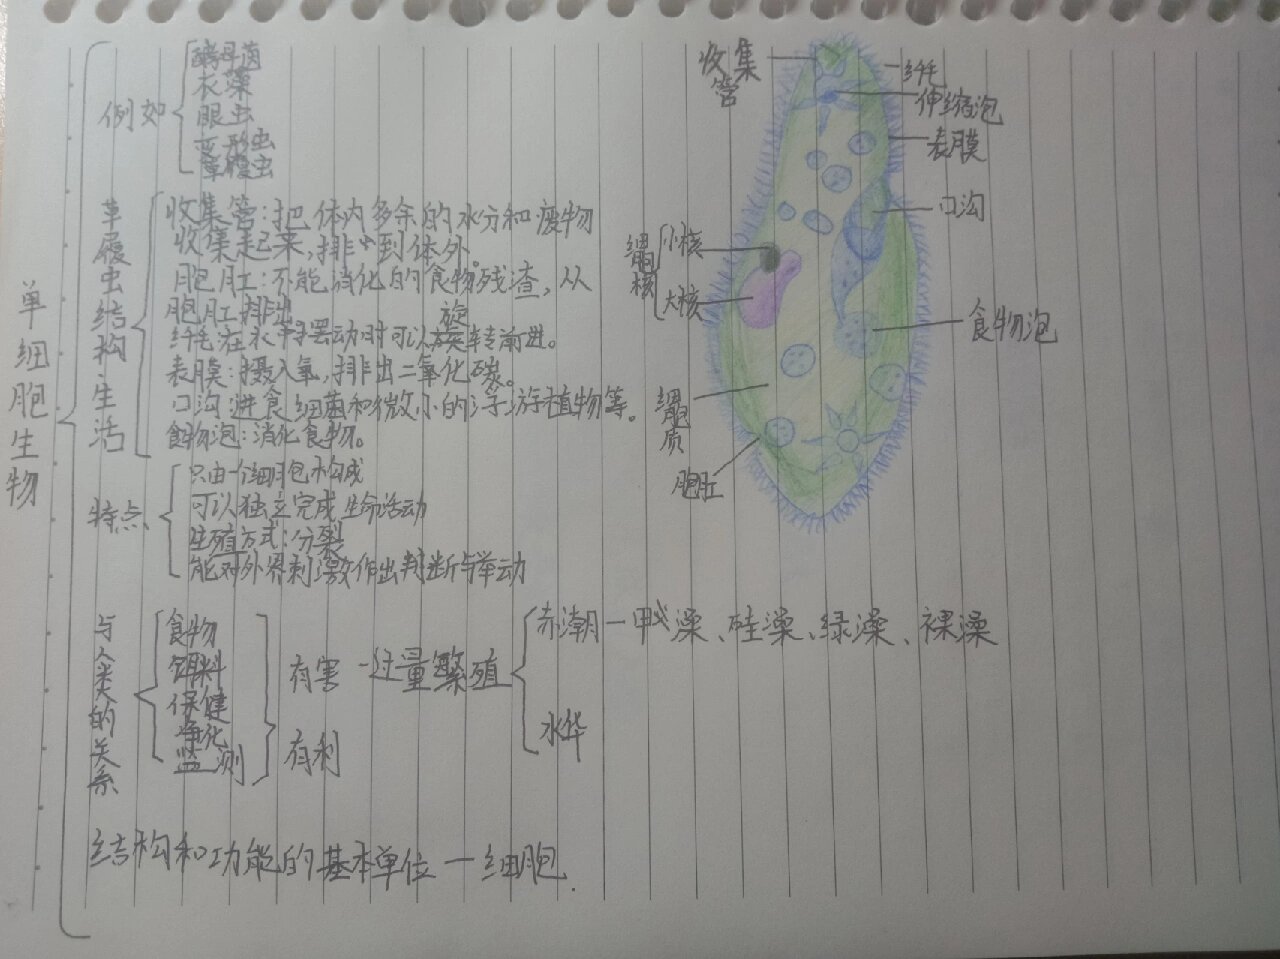 单细胞生物
例如
酵母菌
衣藻
眼虫
变形虫
草履虫
草履虫结构·生活
收集管:把体内多余的水分和废物
收集起来,排到体外。
胞肛:不能消化的食物残渣,从
胞肛排出
旋
纤毛:在水中摆动时可以旋转前进。
表膜:摄入氧,排出二氧化碳。
口沟:进食细菌和微小的浮游植物等。
食物泡:消化食物。
特点
只由一个细胞构成
可以独立完成生命活动
生殖方式:分裂
能对外界刺激作出判断与举动
与人类的关系
食物
饵料
保健
净化
监测
有害—过量繁殖
有利
赤潮—甲澡、硅澡、绿澡、裸澡
水华
结构和功能的基本单位—细胞.
收集管
纤毛
伸缩泡
表膜
口沟
细胞核
小核
大核
食物泡
细胞质
胞肛